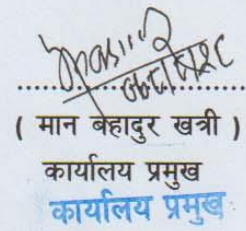 ( मान बहादुर खत्री )
कार्यालय प्रमुख
कार्यालय प्रमुख